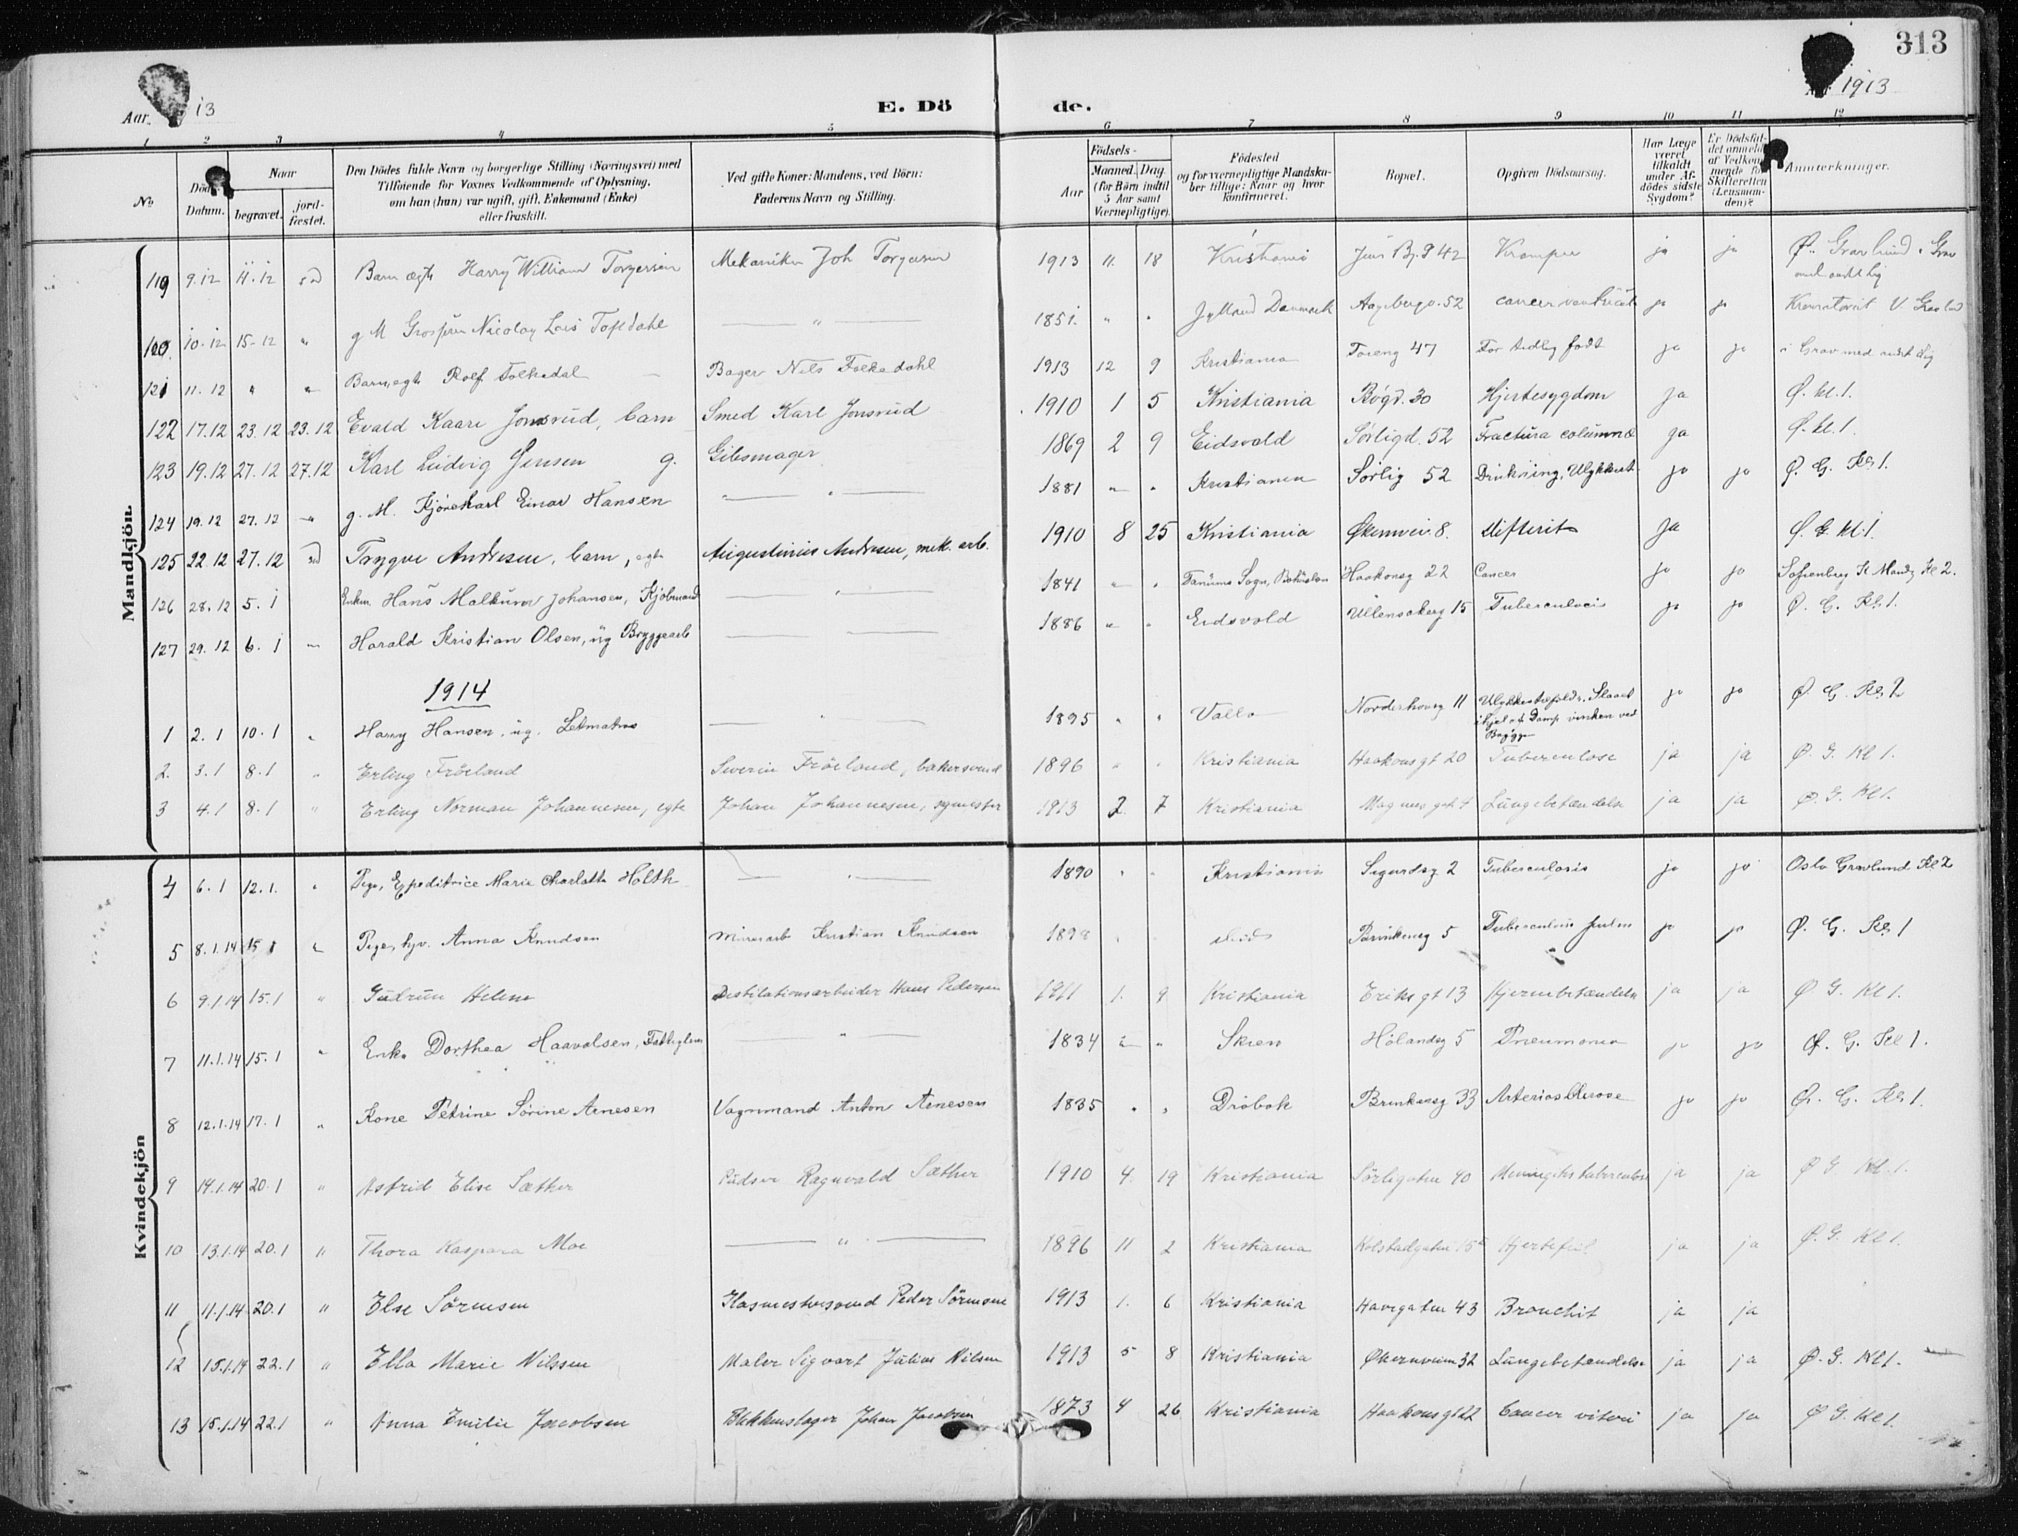 313
Aar 13
E. Dö
de.
1913
1 2 3 4 5 6 7 8 9 10 11 12
No
Datum.
Naar
begravet.
jord-
fæstet.
Den Dödes fulde Navn og borgerlige Stilling (Næringsvei) med
Tilføiende for Voxnes Vedkommende af Oplysning,
om han (hun) var ugift, gift, Enkemand (Enke)
eller fraskilt.
Ved gifte Koner: Mandens, ved Börn:
Faderens Navn og Stilling.
Födsels-
Aar
Maaned. Dag
(for Börn indtil
5 Aar samt
Værnepligtige).
Födested
og for værnepligtige Mandsku-
ber tillige: Naar og hvor
konfirmeret.
Bopæl.
Opgiven Dödsaarsag.
Har Læge
været
tilkaldt
under Af-
dödes sidste
Sygdom?
Er Dödsfal-
det anmeldt
af Vedkom-
mende for
Skifteretten
(Lensman-
den)?
Anmerkninger.
Mandkjön.
119 9.12 11.12 Barn ægte Harry William Torgersen Mekaniker Joh Torgersen 1913 11. 18 Kristiania 42 Kramper ja ja Ø. Gravlund i Grav
med andet lig
120. 10.12 15-12 " g M Nicolay Tofldahl — " — 1851. " " Jylland Danmark 52 cancer ventriculi ja ja Krematoriet V. Gravlund
121 11.12 " " Barn, ægte Rolf Folkedal Bager Nils Folkedahl 1913 12 9 Kristiania 47 For tidlig født ja ja i Grav med andet lig
122 17.12 23.12 23.12 Evald Kaare Jonsrud, barn Smed Karl Jonsrud 1910 1 5 Kristiania Bøgd. 30 Hjertesygdom ja Ø. kl. 1.
123 19.12 27.12 27.12 Karl Ludvig Jensen g. Gibsmager 1869 2 9 Eidsvold Sørligd. 52 Fractura columnæ ja Ø. kl. 1.
124 19.12 27.12 " g. M. Kjørekarl Einar Hansen — " — 1881 " " Kristiania Sørlig 52 Drukning, Ulykkest. ja ja Ø. G. Kl 1.
125 22.12 27.12 Trygve Andresen, barn, egte Augustinius Andresen, mek. arb. 1910 8 25 Kristiania Økernvei. 8. Difterit ja Ø. G. kl. 1.
126 28.12 5.1 Enkm. Hans Johansen, Kjøbmand — " — 1841 " " Tanums Sogn, Bohuslen Haakonsg 22 Cancer ja ja Kl 2.
127 29.12 6.1 " Harald Kristian Olsen, ug Bryggearb — — 1886 " " Eidsvold Ullensakerg 15 Tuberculosis ja ja Ø. G. Kl 1.
1914
1 2.1 10.1 " Harry Hansen, ug. Letmatros — " — 1895 " " Vallø Norderhovg 11 Ulykkestilfælde. Slaaet
ihjel af Damp vinken ved
Brygge ja ja Ø. G. Kl 2
2. 3.1 8.1 " Erling Fröeland Severin Fröeland, bakersvend 1896 " " Kristiania Haakonsgt 20 Tuberculose ja ja Ø. G. Kl 1.
3 4.1 8.1 " Erling Norman Johannesen, egte Johan Johannesen, 1913 2. 7 Kristiania Magnus gt 4 Lungebetændelse ja ja Ø. G. Kl 1.
Kvindekjön
4 6.1 12.1. " Pige, Expeditrice Marie Charlotte Holth — " — 1890 " " Kristiania Sigurdsg 2 Tuberculosis ja ja Oslo Gravlund Kl 2
5 8.1.14 15.1 " Pige, hjv. Anna Knudsen Murerarb Kristian Knudsen 1898 " " Brinkeng 5 Tuberculosis pulm ja ja Ø. G. Kl 1
6 9.1.14 15.1 " Gudrun Helene Destilationsarbeider Hans Pedersen 1911 1. 9 Kristiania Eriks gt 13 Hjernebetændelse ja ja Ø. G. Kl 1.
7 11.1.14 15.1 " Enke Dorthea Haavalsen, Fattiglem — " — 1834 " " Skien Hölandsg 5 Pneumonia ja ja Ø. G. Kl 1.
8 12.1.14 17.1 " Kone Petrine Sörine Arnesen Vognmand Anton Arnesen 1835 " " Dröbak Brinkeng 33 Arteriosklerose ja ja Ø. G. Kl 1.
9 14.1.14 20.1 " Astrid Elise Sæther Pudser Ragnvald Sæther 1910 4. 19 Kristiania Sörligaten 40 ja ja Ø G. Kl. 1.
10 13.1.14 20.1 " Thora Kaspara Moe — " — 1896 11 2 Kristiania Kolstadgaten 15 Hjertefeil ja ja Ø. G. Kl 1.
11 11.1.14 20.1 " Else Sörensen Peder Sörensen 1913 1. 6 Kristiania Havegaten 43 Bronchit ja ja
12 15.1.14 22.1 " Ella Marie Nilssen Maler Sigvart Julius Nilsen 1913 5 8 Kristiania Økernveien 32 Lungebetændelse ja ja Ø. G. Kl 1.
13 15.1.14 22.1 " Anna Emilie Jacobsen Blikkenslager Johan Jacobsen 1873 4 26 Kristiania Haakonsgt 22 Cancer uteri ja ja Ø G. Kl 1.